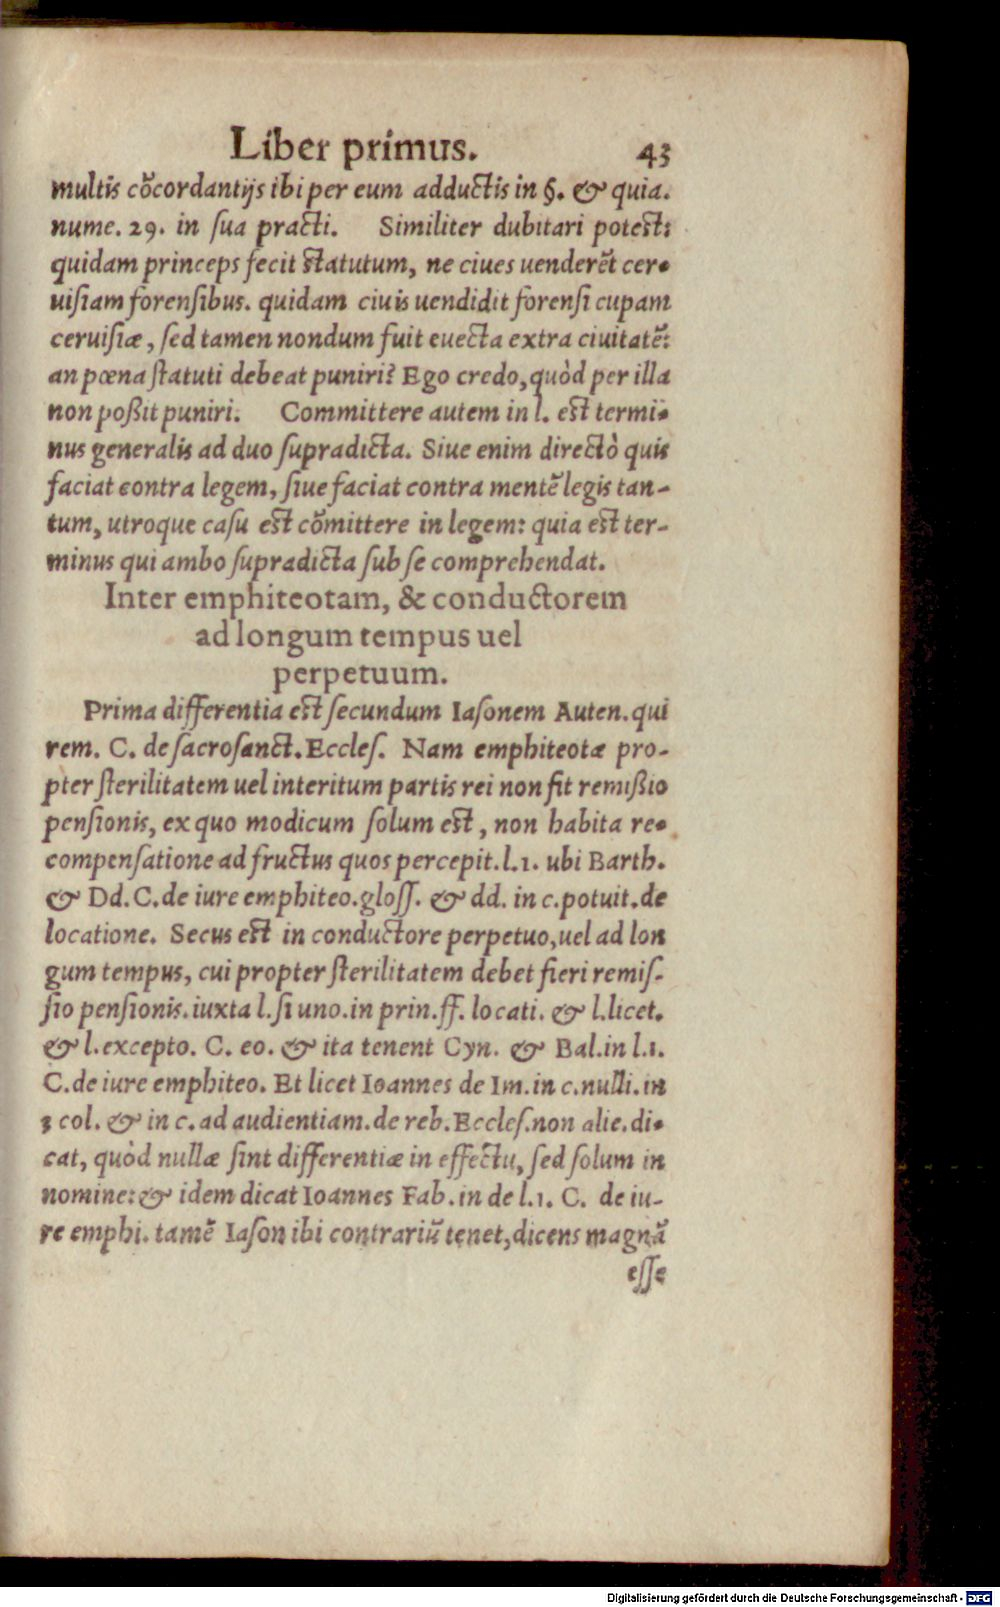 Liber primus. 43
multis cõcordantijs ibi per eum adductis in §. & quia.
nume. 29. in sua practi. Similiter dubitari potest:
quidam princeps fecit statutum, ne ciues uenderẽt cer-
uisiam forensibus. quidam ciuis uendidit forensi cupam
ceruisiæ, sed tamen nondum fuit euecta extra ciuitatẽ:
an pœna statuti debeat puniri? Ego credo, quòd per illa
non poßit puniri. Committere autem in l. est termi-
nus generalis ad duo supradicta. Siue enim directò quis
faciat contra legem, siue faciat contra mentẽ legis tan-
tum, utroque casu est cõmittere in legem: quia est ter-
minus qui ambo supradicta sub se comprehendat.
Inter emphiteotam, & conductorem
ad longum tempus uel
perpetuum.
Prima differentia est secundum Iasonem Auten. qui
rem. C. de sacrosanct. Eccles. Nam emphiteotæ pro-
pter sterilitatem uel interitum partis rei non fit remißio
pensionis, ex quo modicum solum est, non habita re-
compensatione ad fructus quos percepit. l.1. ubi Barth.
& Dd. C. de iure emphiteo. gloss. & dd. in c. potuit. de
locatione. Secus est in conductore perpetuo, uel ad lon
gum tempus, cui propter sterilitatem debet fieri remis-
sio pensionis. iuxta l. si uno. in prin. ff. locati. & l. licet.
& l. excepto. C. eo. & ita tenent Cyn. & Bal. in l.1.
C. de iure emphiteo. Et licet Ioannes de Im. in c. nulli. in
3 col. & in c. ad audientiam. de reb. Eccles. non alie. di-
cat, quòd nullæ sint differentiæ in effectu, sed solum in
nomine: & idem dicat Ioannes Fab. in de l.1. C. de iu-
re emphi. tamẽ Iason ibi contrariũ tenet, dicens magnã
esse
Digitalisierung gefördert durch die Deutsche Forschungsgemeinschaft - DFG